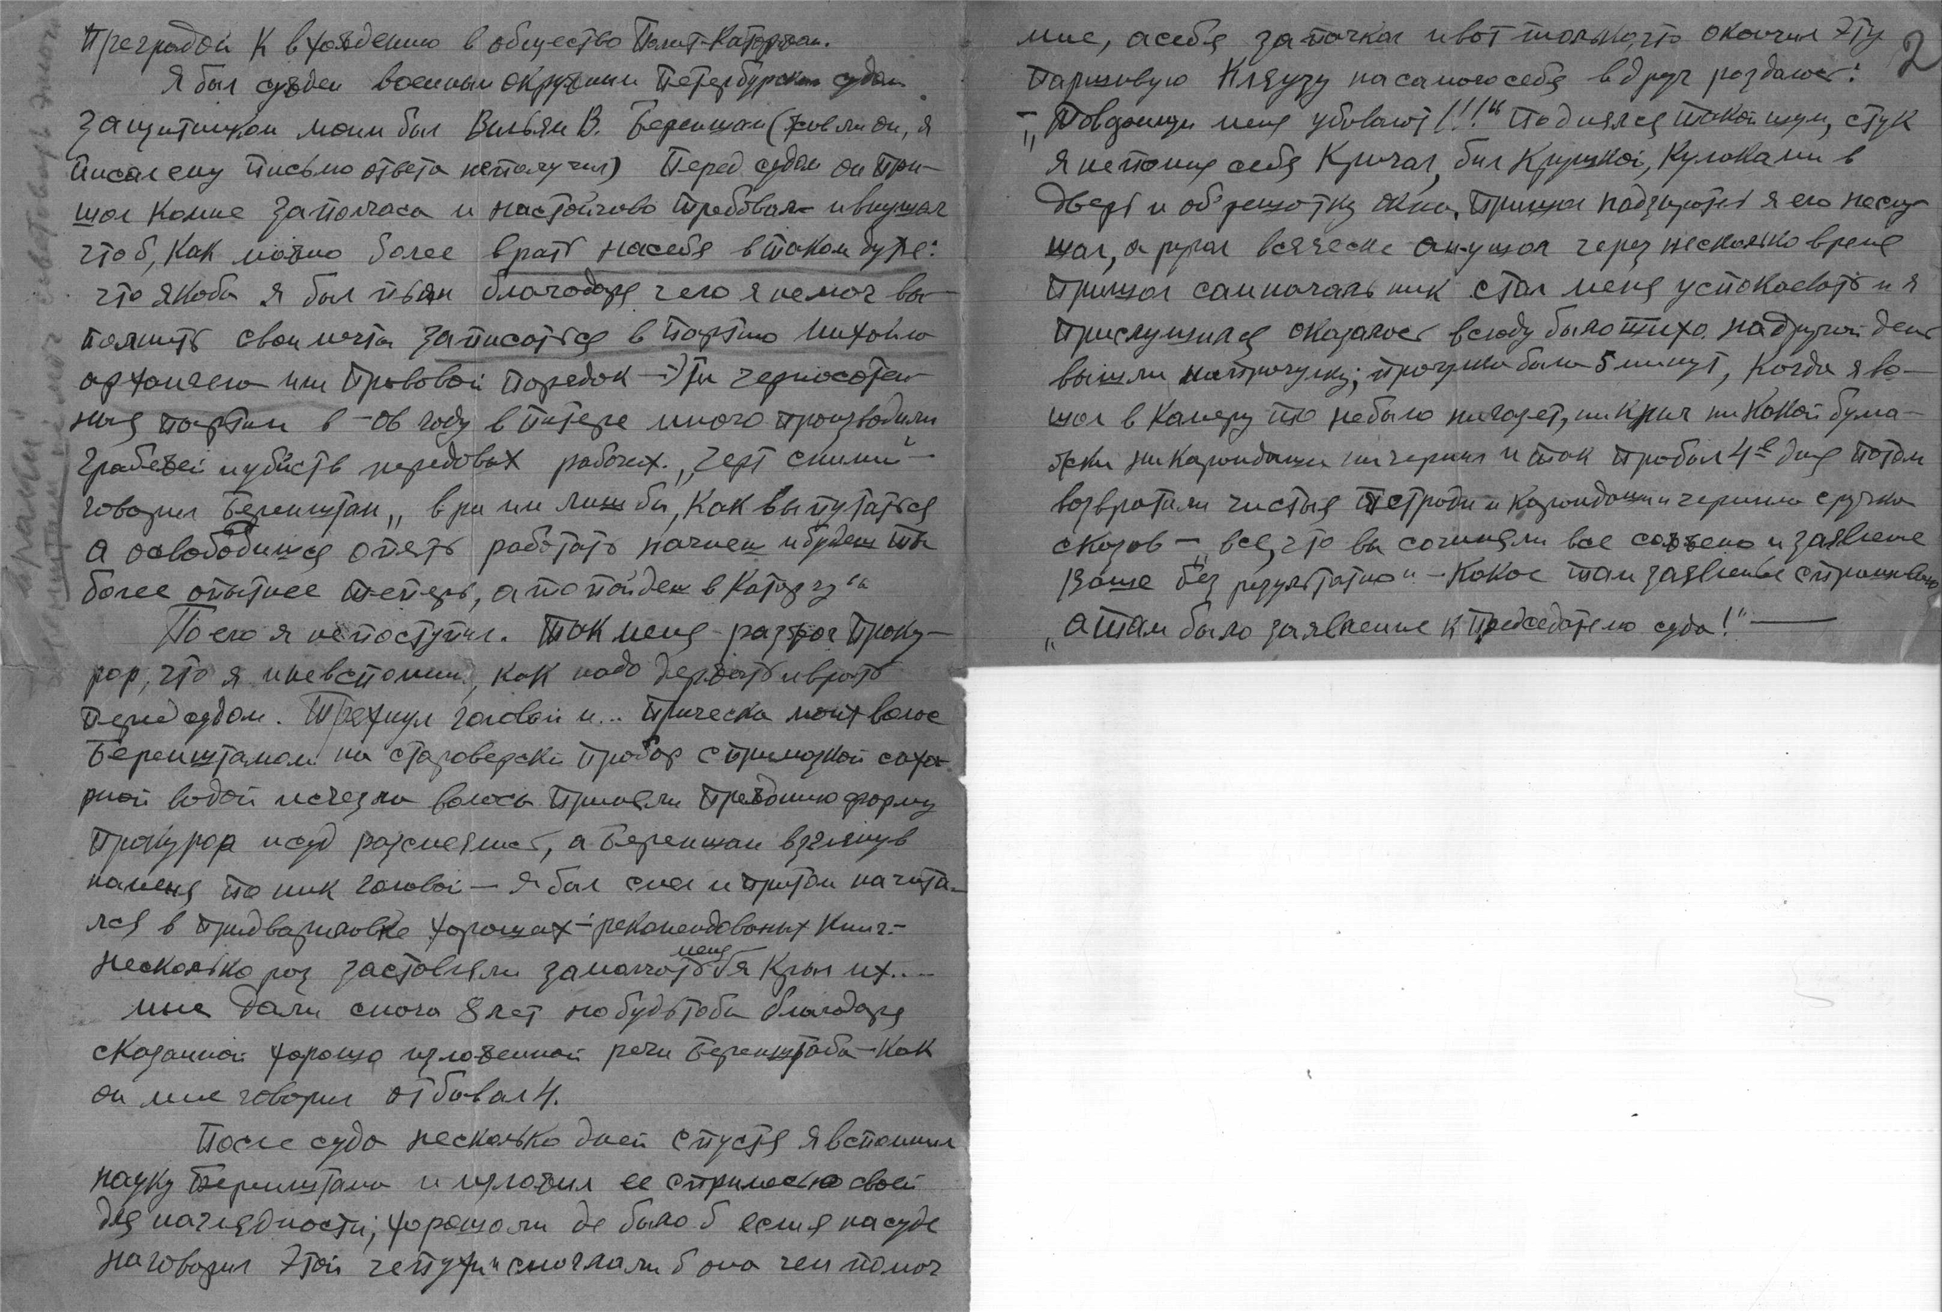 Преградой к вхождению в общество Полит-Каторжан.
Я был сужден военным окружным Петербургским судом
защитником моим был Вильям В. Беренштам (жов ли он, я
писал ему письмо ответа не получил) Перед судом он при-
шол комне за полчаса и настойчово требовал и внушал
чтоб, как можно более врать на себя в таком духе:
что якобы я был пьян благодаря чего я немог вы-
полнить свои мечты записаться в партию Михайло
архангела или Правовой порядок — Эти черносотен-
ныя партии в -06 году в Питере много производили
грабежей и убийств передовых рабочих. „Черт с ними" —
говорил Беренштам „ври им лиш бы, как выпутаться
а освободишся опять работать начнеш и будеш ты
более опытнее теперь, а то пойдеш в Каторгу"
По его я не поступил. Так меня разжог проку-
рор, что я и невспомнил, как надо держать и врать
перед судом. Трехнул головой и... прическа моих волос
Беренштамом на староверский пробор с примазкой саха-
рной водой исчезла волосы приняли прежнию форму
Прокурор и суд разсмеялись, а Беренштам взглянув
на меня поник головой — Я был смел и притом начита-
лся в предвариловке хороших рекомендованных книг.-
несколько раз заставляли меня замолчать б я крыл их...-
мне дали снова 8 лет но будьтобы благодаря
сказанной хорошо изложенной речи Беренштама — как
он мне говорил отбывал 4.
После суда несколько дней спустя я вспомнил
науку Беренштама и изложил ее с примесью своей
для наглядности; хорошо ли де было б если я на суде
наговорил этой чепухи и смогла ли б она чем помоч
мне, а себя запачкал и вот только, что окончил эту
паршивую кляузу на самого себя вдруг раздалось:
— „Товарищи меня убивают!!!" Поднялся такой шум, стук
я не помня себя кричал, бил кружкой, кулаками в
дверь и об решотку окна, пришол надзиратель я его неслу-
шал, а ругал всячески он ушол через несколько время
пришол сам начальник стал меня успокоевать и я
прислушился оказалось всюду было тихо. на другой день
вышли на прогулку; прогулка была 5 минут, Когда я во-
шол в камеру то небыло ни газет, ни книг ни какой бума-
жки ни карандаша ни чернил и так пробыл 4е дня потом
возвратили чистыя тетради и карандаши и чернила с ручкой
сказав — „все, что вы сочиняли все сожжено и заявление
Ваше без результатно" — Какое там заявление спрашиваю
„а там было заявление к председателю суда!" —
2